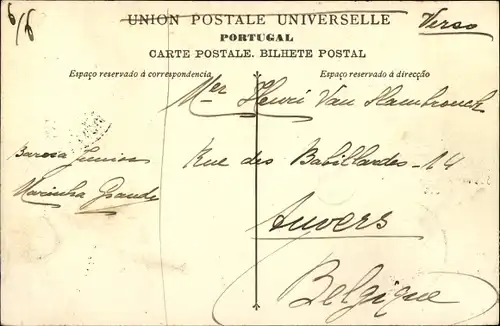 6/6
Verso
UNION POSTALE UNIVERSELLE
PORTUGAL
CARTE POSTALE. BILHETE POSTAL
Espaço reservado á correspondencia
Espaço reservado á direcção
Mer Henri Van Hambrouck
Rue des Babillardes-14
Anvers
Belgique
Barosa Junior
Marinha Grande